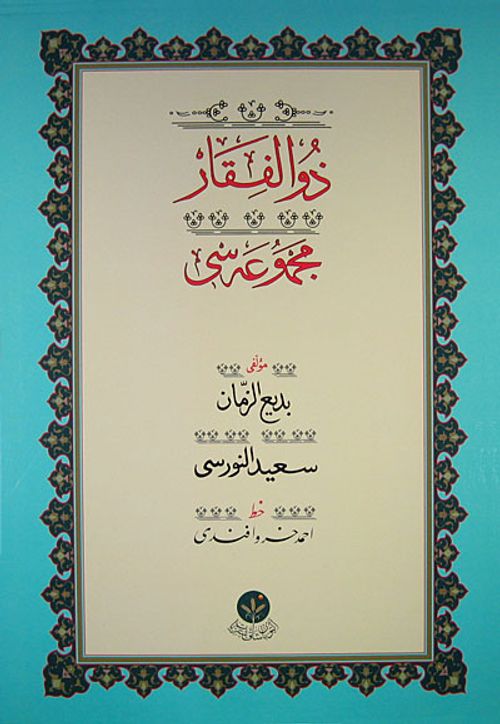 ذُو الفِقَار
مَجْمُوعَه سِی
مؤلفی
بديع الزمّان
سعيد النورسی
خط
احمد خسرو افندی